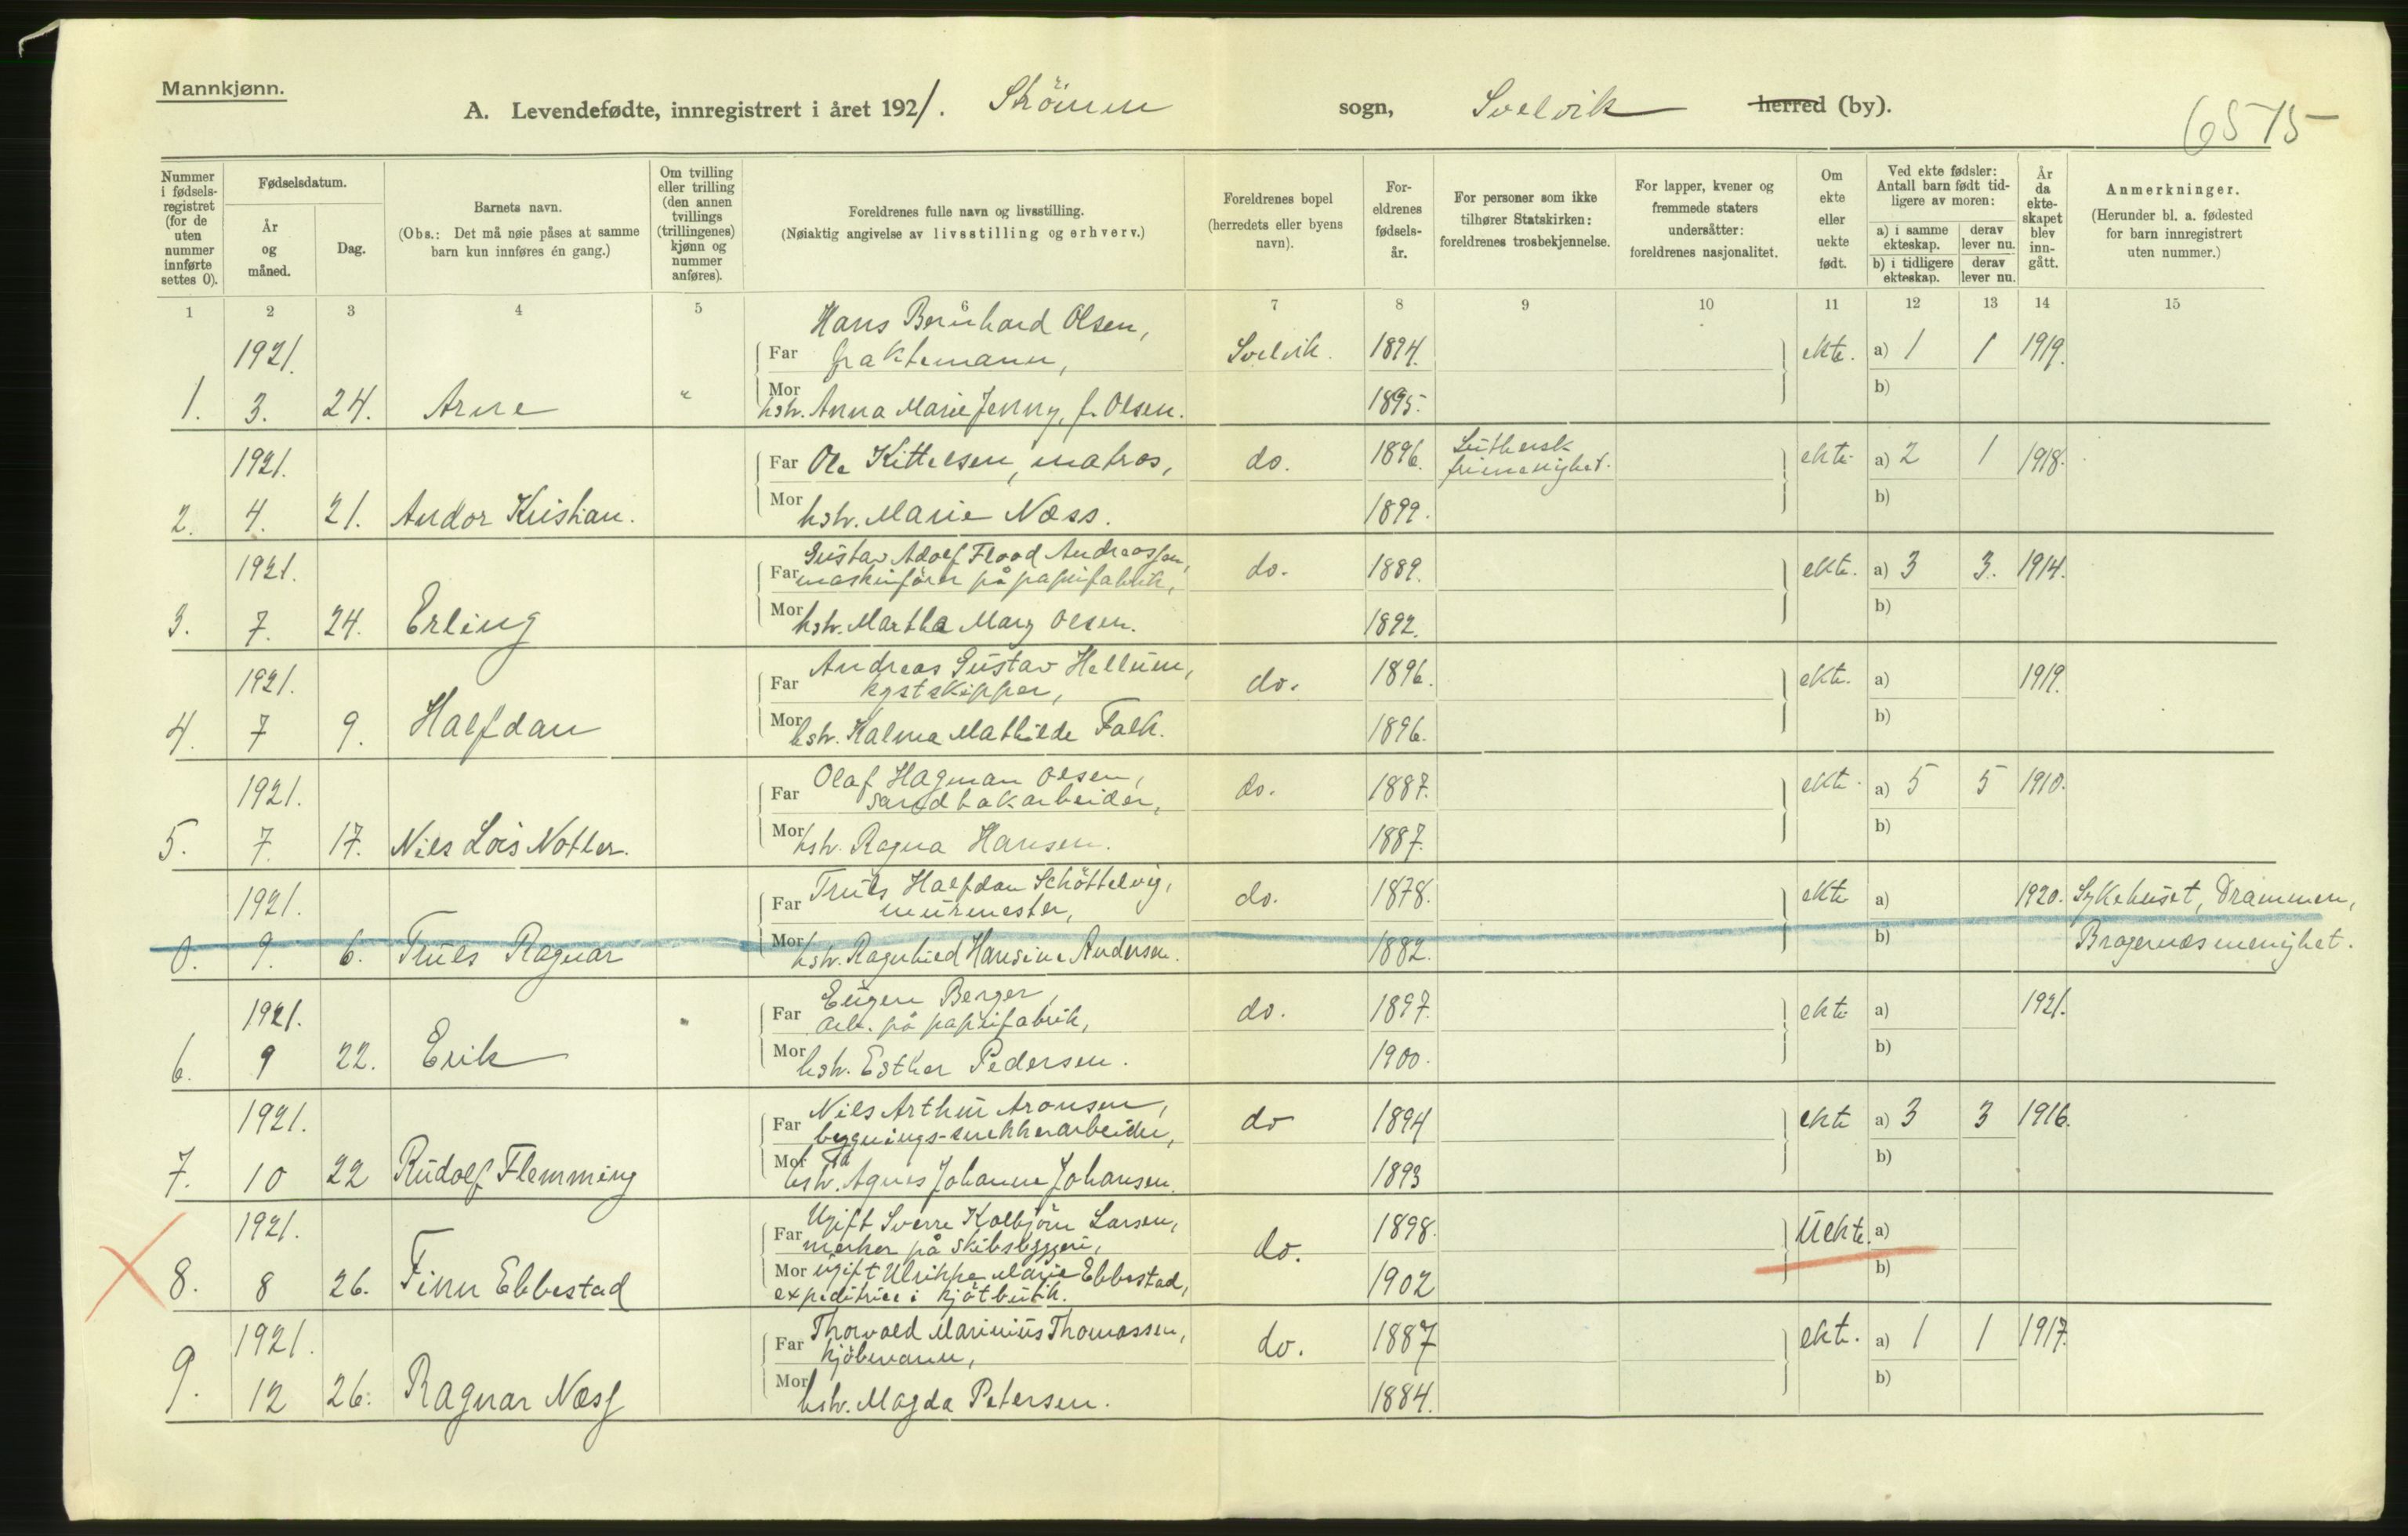 Mannkjønn.
A. Levendefødte, innregistrert i året 1921. Strömm sogn, Svelvik herred (by).
6575
Nummer i fødselsregistret (for de uten nummer innførte settes 0).
Fødselsdatum.
År og måned.
Dag.
Barnets navn.
(Obs.: Det må nøie påses at samme barn kun innføres én gang.)
Om tvilling eller trilling (den annen tvillings (trillingenes) kjønn og nummer anføres).
Foreldrenes fulle navn og livsstilling.
(Nøiaktig angivelse av livsstilling og erhverv.)
Foreldrenes bopel (herredets eller byens navn).
Foreldrenes fødselsår.
For personer som ikke tilhører Statskirken: foreldrenes trosbekjennelse.
For lapper, kvener og fremmede staters undersåtter: foreldrenes nasjonalitet.
Om ekte eller uekte født.
Ved ekte fødsler: Antall barn født tidligere av moren:
a) i samme ekteskap. derav lever nu.
b) i tidligere ekteskap. derav lever nu.
År da ekteskapet blev inngått.
Anmerkninger.
(Herunder bl. a. fødested for barn innregistrert uten nummer.)
1 2 3 4 5 6 7 8 9 10 11 12 13 14 15
Hans Bernhard Olsen,
1921. Far fraktemann, Svelvik. 1894. ekte. a) 1 1 1919.
1. 3. 24. Arne " Mor hstr. Anna Marie Jenny, f. Olsen. 1895. b)
1921. Far Ole Kittelsen, matros, do. 1896. Luthersk frimenighet. ekte a) 2 1 1918.
2. 4. 21. Andor Kristian. Mor hstr. Marie Næss. 1899. b)
Gustav Adolf Flood Andreassen,
1921. Far maskinförer på papirfabrik, do. 1889. ekte. a) 3 3. 1914.
3. 7. 24. Erling Mor hstr. Martha Mary Olsen. 1892. b)
Andreas Gustav Hellum,
1921. Far kystskipper, do. 1896. ekte. a) 1919.
4. 7 9. Halfdan Mor hstr. Kalma Mathilde Falk. 1896. b)
Olaf Hagman Olsen,
1921. Far sandtakarbeider, do. 1887. ekte. a) 5 5 1910.
5. 7. 17. Nils Lois Notler. Mor hstr. Ragna Hansen. 1887. b)
Truls Halfdan Schöttelvig,
1921. Far murmester, do. 1878. ekte a) 1920. Sykehuset, Drammen,
0. 9. 6. Truls Ragnar Mor hstr. Ragnhild Hansine Andersen. 1882. b) Bragernæs menighet.
Eugen Berger,
1921. Far arb. på papirfabrik, do. 1897. ekte a) 1921.
6. 9 22. Erik Mor hstr. Esther Pedersen. 1900. b)
Nils Arthur Aronsen,
1921. Far bygnings-snekkerarbeider, do 1894 ekte a) 3 3 1916.
7. 10 22 Rudolf Flemming Mor hstr. Agnes Johanne Johansen. 1893 b)
Ugift Sverre Kolbjörn Larsen,
1921. Far merker på skibsbyggeri, do. 1898. Uekte. a)
8. 8 26. Finn Ebbestad Mor ugift Ulrikke Marie Ebbestad, 1902 b)
expeditrice i kjötbutik.
Thorvald Marinius Thomassen,
1921. Far kjöbmann, do. 1887 ekte. a) 1 1 1917.
9. 12 26. Ragnar Næss Mor hstr. Magda Petersen. 1884. b)